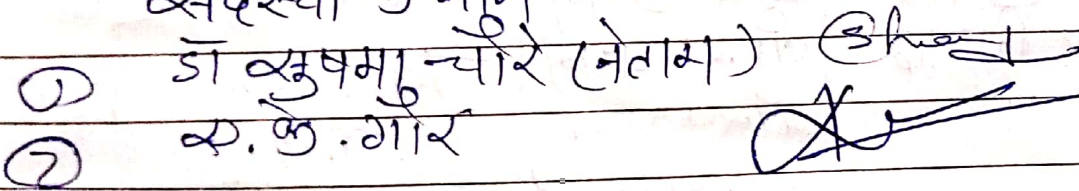 ① डॉ सुषमा चौरे (नेताम)
② ए. के. गौर